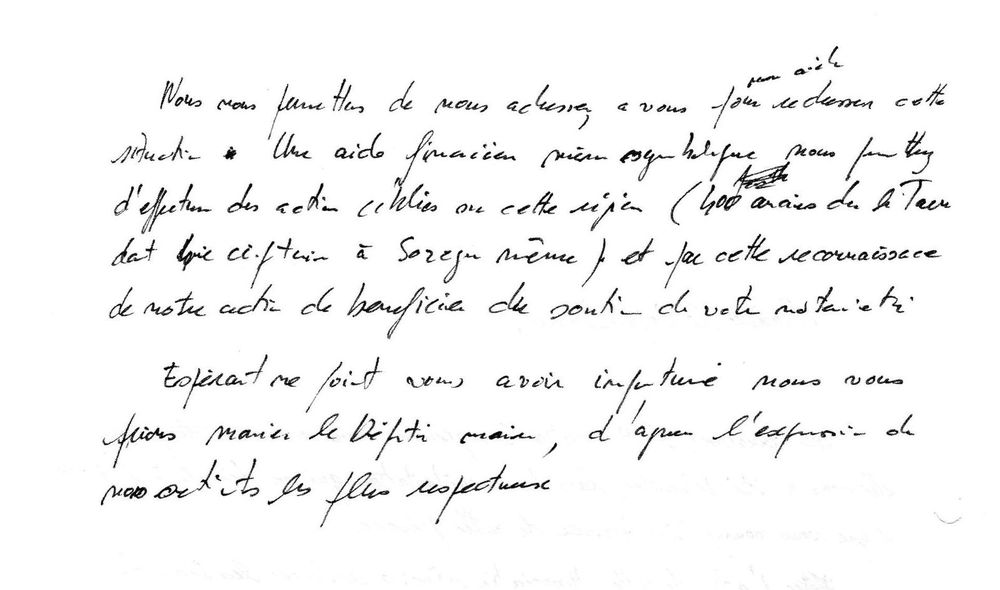 nous aider
Nous nous permettons de nous adresser à vous pour redresser cette
situation. Une aide financière même symbolique nous permettrait
d'effectuer des actions ciblées sur cette région (400 dans le Tarn
dont à Sorèze même) et par cette reconnaissance
de notre action de bénéficier du soutien de votre notoriété
Espérant ne point vous avoir importuné nous vous
prions monsieur le Député maire, d'agréer l'expression de
nos sentiments les plus respectueux